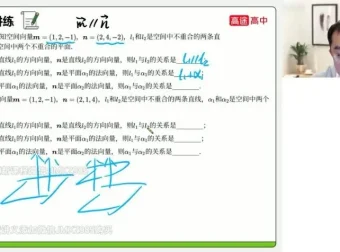 讲练 m // n 高途 高中
知空间向量m=(1,2,-1), n=(2,4,-2), l₁和l₂是空间中不重合的两条直
空间中两个不重合的平面.
直线l₁的方向向量, n是直线l₂的方向向量, 则l₁与l₂的关系是 l₁//l₂
直线l₁的方向向量, n是平面α₁的法向量, 则l₁与α₁的关系是 l₁⊥α₁
向量m=(1,2,-1), n=(2,1,4), l₁和l₂是空间中不重合的两条直线, α₁和α₂是空间中两个
直线l₁的方向向量, n是直线l₂的方向向量, 则l₁与l₂的关系是______;
直线l₁的方向向量, n是平面α₁的法向量, 则l₁与α₁的关系是______;
平面α₁的法向量, n是平面α₂的法向量, 则α₁与α₂的关系是______.